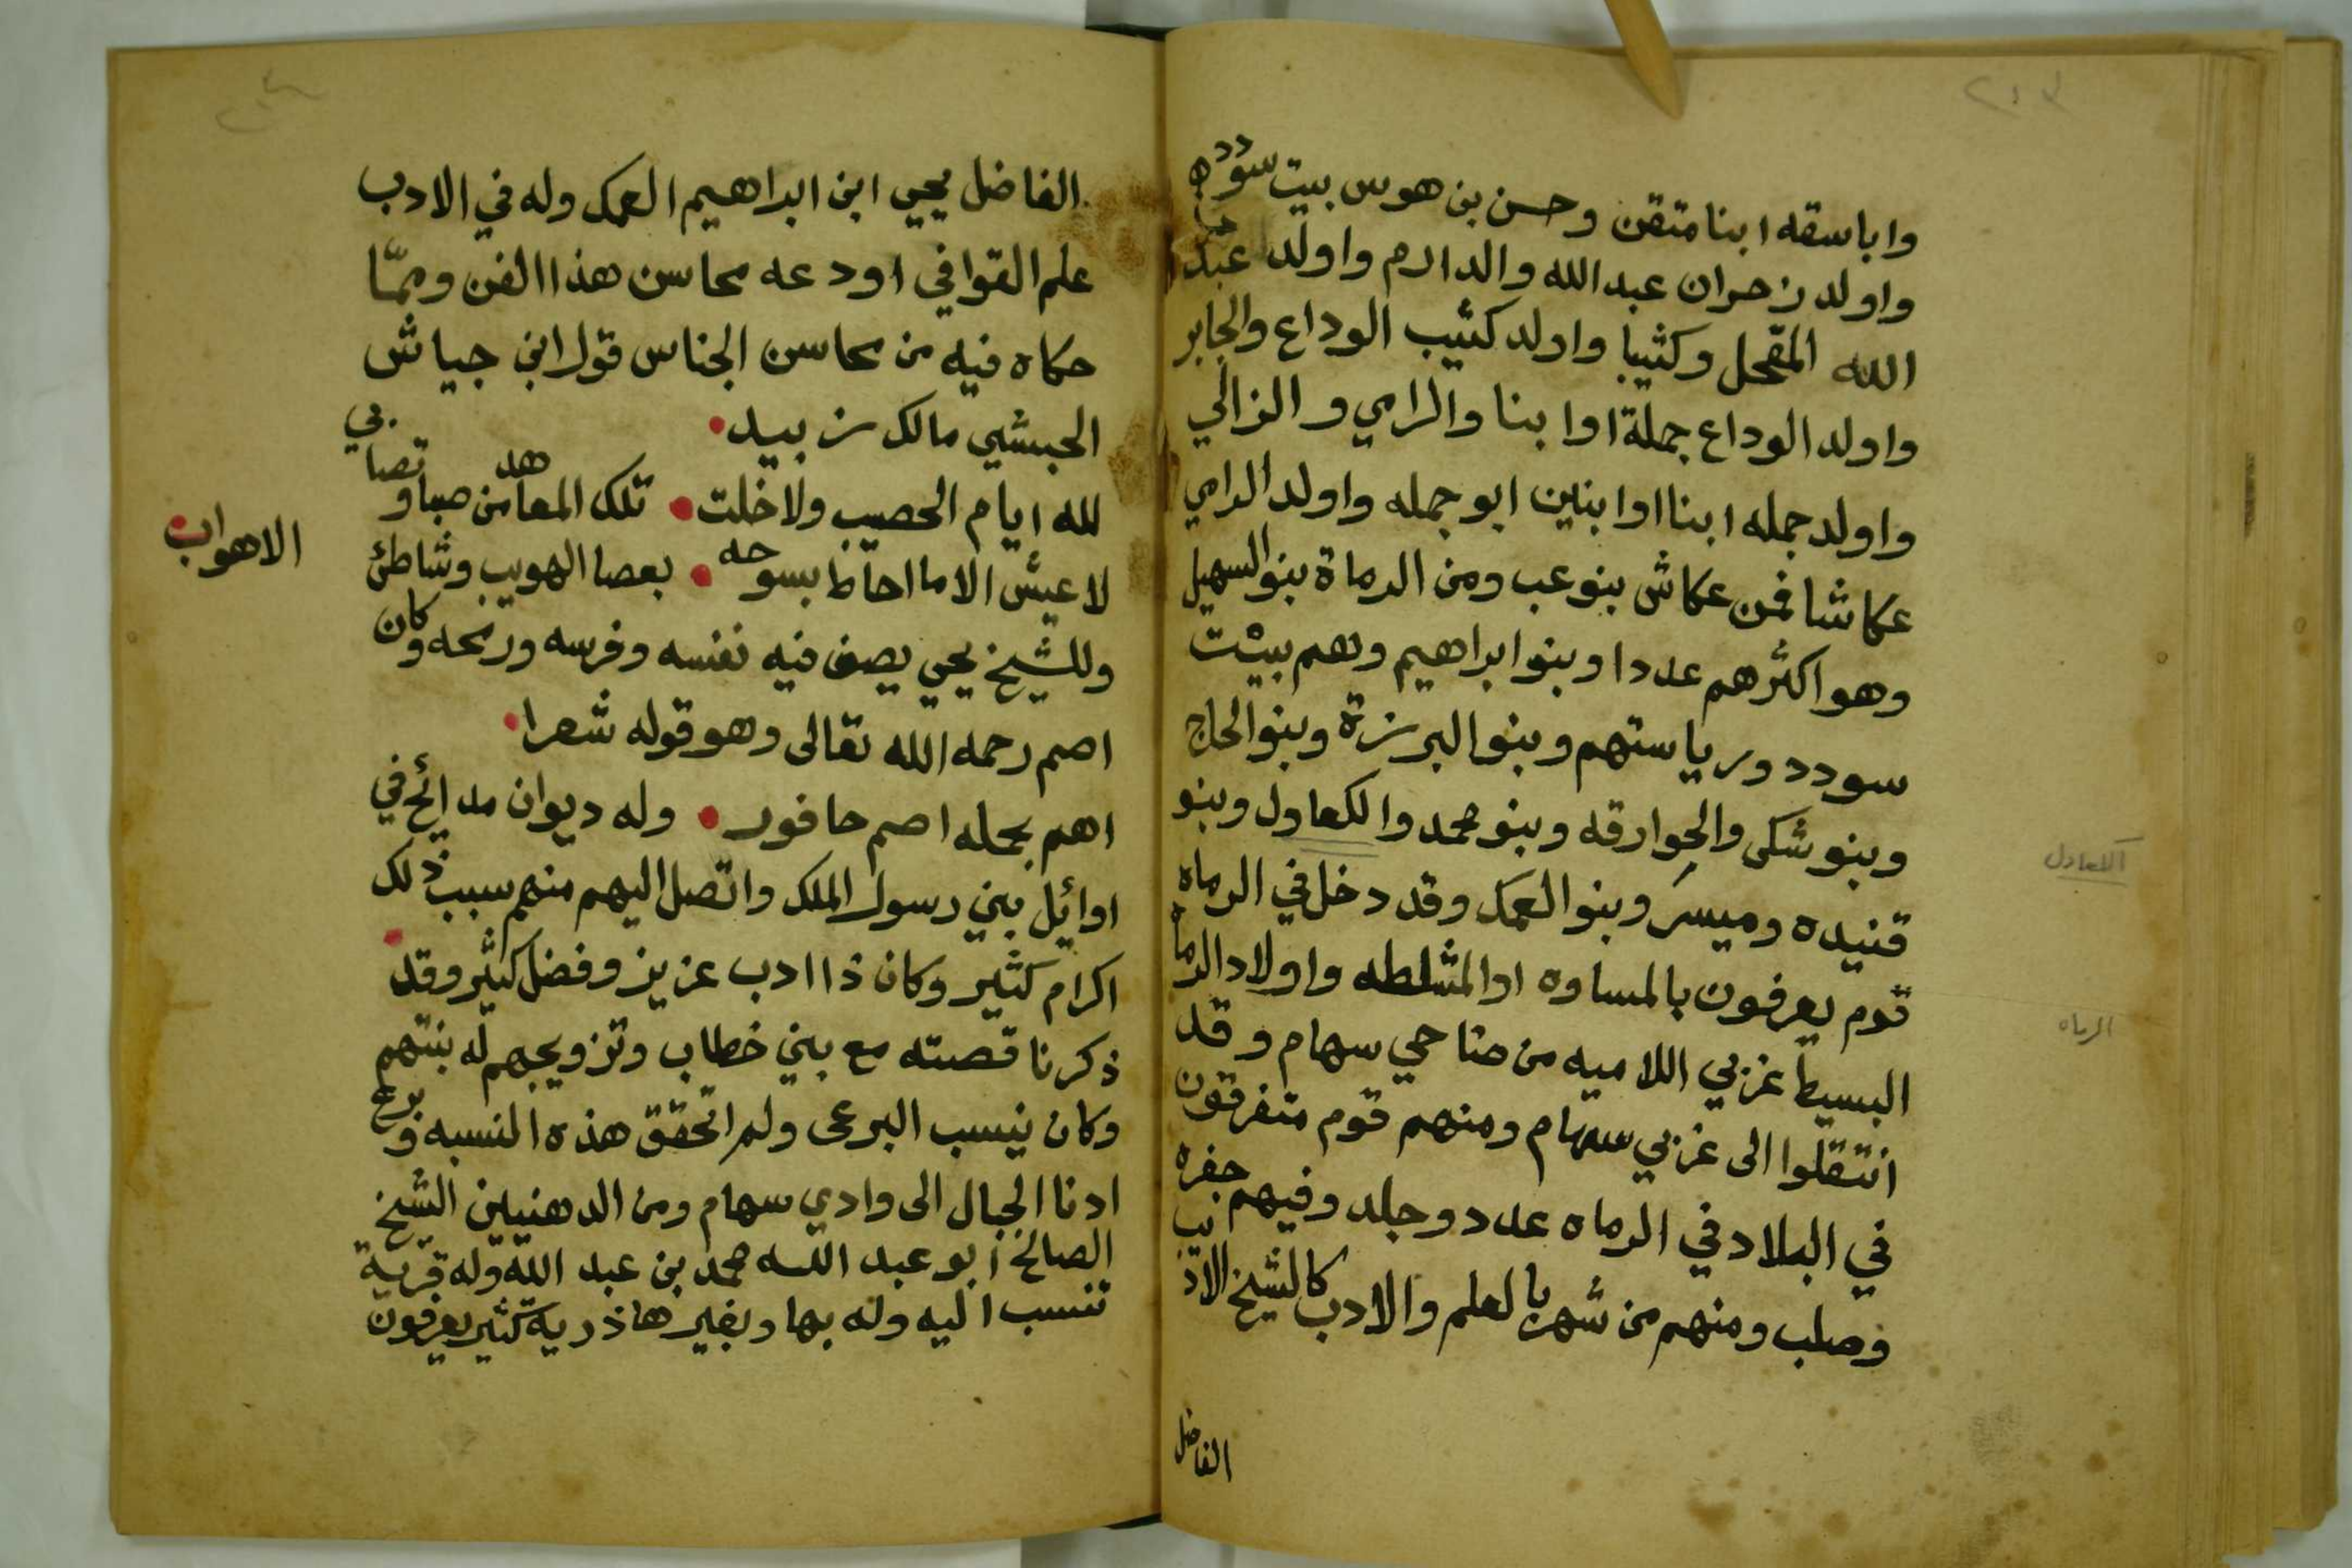 ٢١٣
واباسقه ابنا متقن وحسن بن هوس بيت سودده
واولد زحران عبد الله والدارم واولد عبد
الله المقحل وكثيبا واولد كثيب الوداع والجابر
واولد الوداع جملة اوابنا والرامي والزالي
واولد جمله ابنا اوابنين ابو جمله واولد الرامي
عكاشا فمن عكاش بنو عب ومن الرماة بنو السهيل
وهو اكثرهم عددا وبنو ابراهيم وهم بيت
سودد ورياستهم وبنو البرزة وبنو الحاج
وبنو شكى والجوارقه وبنو محمد والكعاول وبنو
قنيده وميسر وبنو العمك وقد دخل في الرماه
قوم يعرفون بالمساوه او المشلطه واولاد الرماه
البسيط غربي اللاميه من ضاحي سهام وقد
انتقلوا الى غربي سهام ومنهم قوم متفرقون
في البلاد في الرماه عدد وجلد وفيهم جفره
وصلب ومنهم من شهر بالعلم والادب كالشيخ الاديب
الفاضل
الرماه
الفاضل يحيى ابن ابراهيم العمك وله في الادب
علم القوافي اودعه محاسن هذا الفن وممّا
حكاه فيه من محاسن الجناس قول ابن جياش
الحبشي مالك زبيد
لله ايام الحصيب ولا خلت تلك المعاهد من صبا وتصابي
لا عيش الا ما احاط بسوحه بعصا الهويب وشاطئ
الاهواب
وللشيخ يحيى يصف فيه نفسه وفرسه ورمحه وكان
اصم رحمه الله تعالى وهو قوله شعرا
اهم بحمله اصم حافور وله ديوان مدائح في
اوائل بني رسول الملك واتصل اليهم منهم سبب ذلك
اكرام كثير وكان ذا ادب عزيز وفضل كثير وقد
ذكرنا قصته مع بني خطاب وتزويجهم له بنتهم
وكان ينسب البرعى ولم اتحقق هذه النسبه وبرع
ادنا الجبال الى وادي سهام ومن الدهنيين الشيخ
الصالح ابو عبد الله محمد بن عبد الله وله قرية
تنسب اليه وله بها وبغيرها ذرية كثير يعرفون